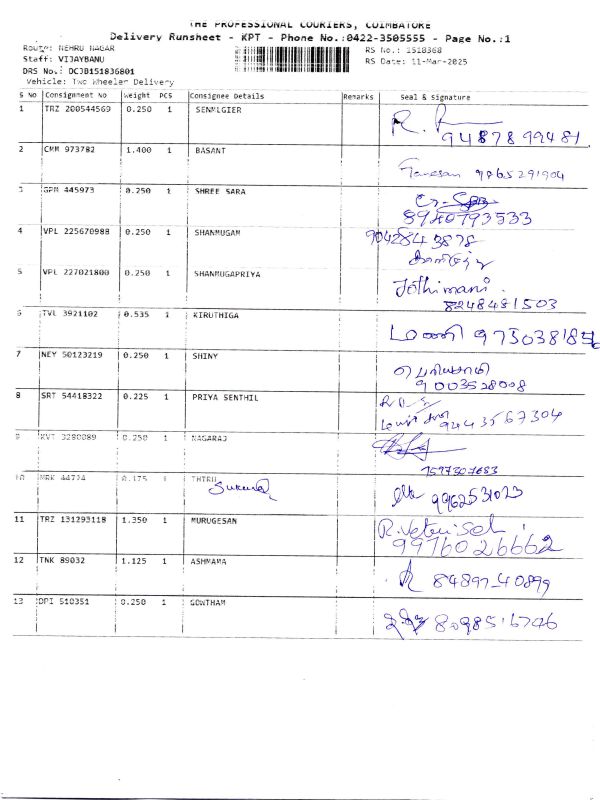 THE PROFESSIONAL COURIERS, COIMBATORE
Delivery Runsheet - KPT - Phone No.:0422-3505555 - Page No.:1
Route: NEHRU NAGAR
RS No.: 1518368
Staff: VIJAYBANU
RS Date: 11-Mar-2025
DRS No.: DCJB151836801
Vehicle: Two Wheeler Delivery
S No Consignment No Weight PCS Consignee Details Remarks Seal & Signature
1 TRZ 200544569 0.250 1 SENMLGIER
9487899481
2 CMM 973782 1.400 1 BASANT
Ganesan 9965291904
3 GPM 445973 0.250 1 SHREE SARA
8940793533
4 VPL 225670988 0.250 1 SHANMUGAM 9042843878
5 VPL 227021800 0.250 1 SHANMUGAPRIYA Jothimani
8248481503
6 TVL 3921102 0.535 1 KIRUTHIGA
மணி
7 NEY 50123219 0.250 1 SHINY
9003528008
8 SRT 54418322 0.225 1 PRIYA SENTHIL
9443567304
9 KVT 3280089 0.250 1 NAGARAJ
10 MRK 44724 0.175 1
9962531023
11 TRZ 131293118 1.350 1 MURUGESAN
9976026662
12 TNK 89032 1.125 1 ASHMAMA
84897-40899
13 DPI 510351 0.250 1 GOWTHAM
8098516746